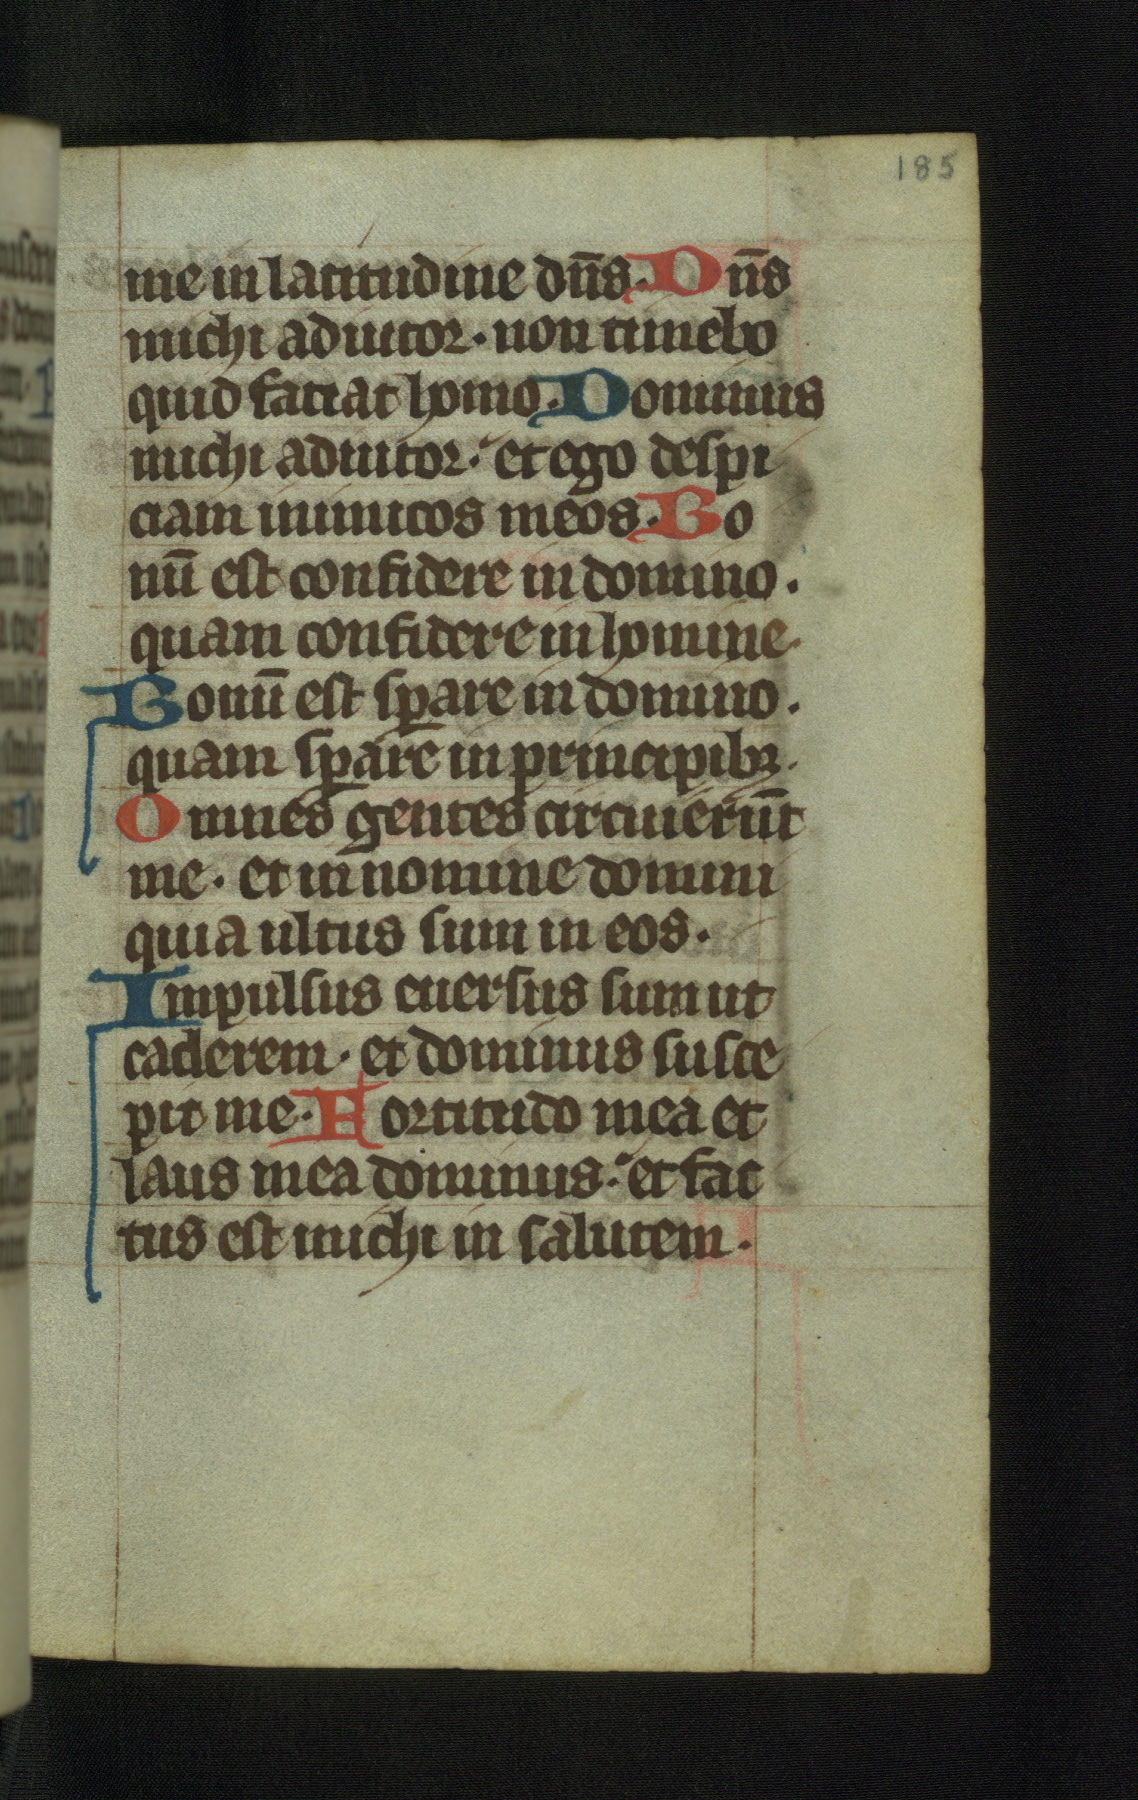 185
me in latitudine dn̄s. Dn̄s
michi adiutor. non timebo
quid faciat homo. Dominus
michi adiutor. et ego despi
ciam inimicos meos. Bo
nū est confidere in domino.
quam confidere in homine.
Bonū est sꝑare in domino.
quam sꝑare in principibꝫ.
Omnes gentes circuierūt
me. et in nomine domini
quia ultus sum in eos.
Impulsus euersus sum ut
caderem. et dominus susce
pit me. Fortitudo mea et
laus mea dominus. et fac
tus est michi in salutem.